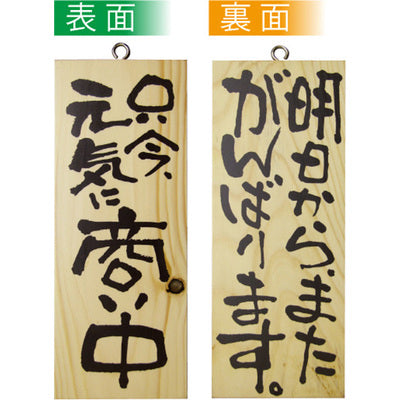 表面
只今、
元気に
商い中
裏面
明日から、また
がんばります。